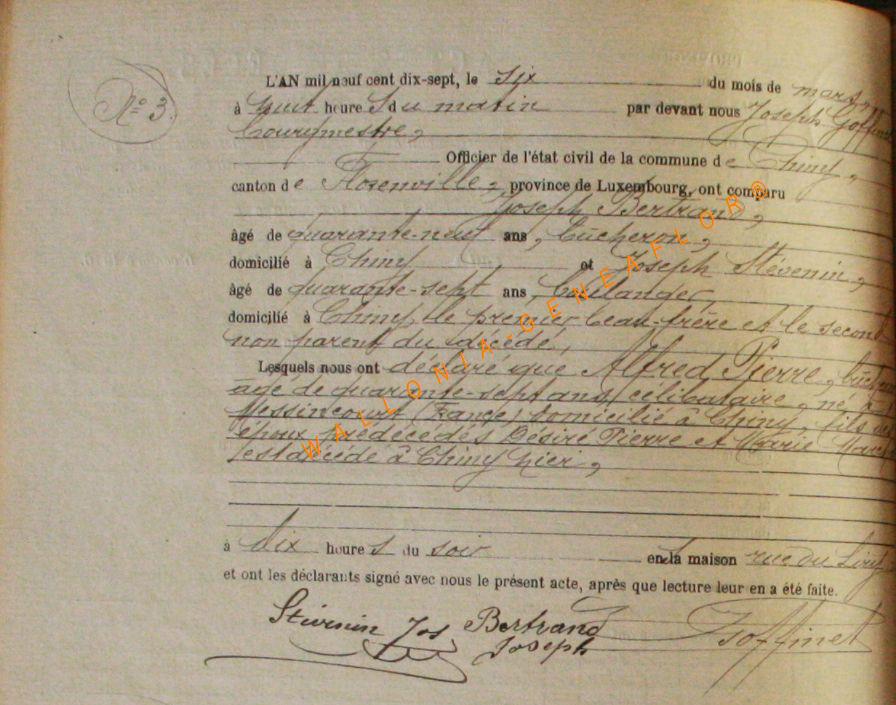 N° 3.
L'AN mil neuf cent dix-sept, le six du mois de mars,
à huit heures du matin par devant nous Joseph Goffinet
bourgmestre,
Officier de l'état civil de la commune de Chiny,
canton de Florenville, province de Luxembourg, ont comparu
Joseph Bertrand,
âgé de quarante-neuf ans, bûcheron,
domicilié à Chiny et Joseph Stévenin,
âgé de quarante-sept ans, boulanger,
domicilié à Chiny, le premier beau-frère et le second
non parent du décédé,
Lesquels nous ont déclaré que Alfred Pierre,
âgé de quarante-sept ans, célibataire, né à
Messincourt (France) domicilié à Chiny, fils des
époux prédécédés Désiré Pierre et Marie
est décédé à Chiny hier,
à dix heures du soir en la maison rue du
et ont les déclarants signé avec nous le présent acte, après que lecture leur en a été faite.
Stévenin Jos Bertrand Joseph JGoffinet
WALLONIA-GENEAFLOR®